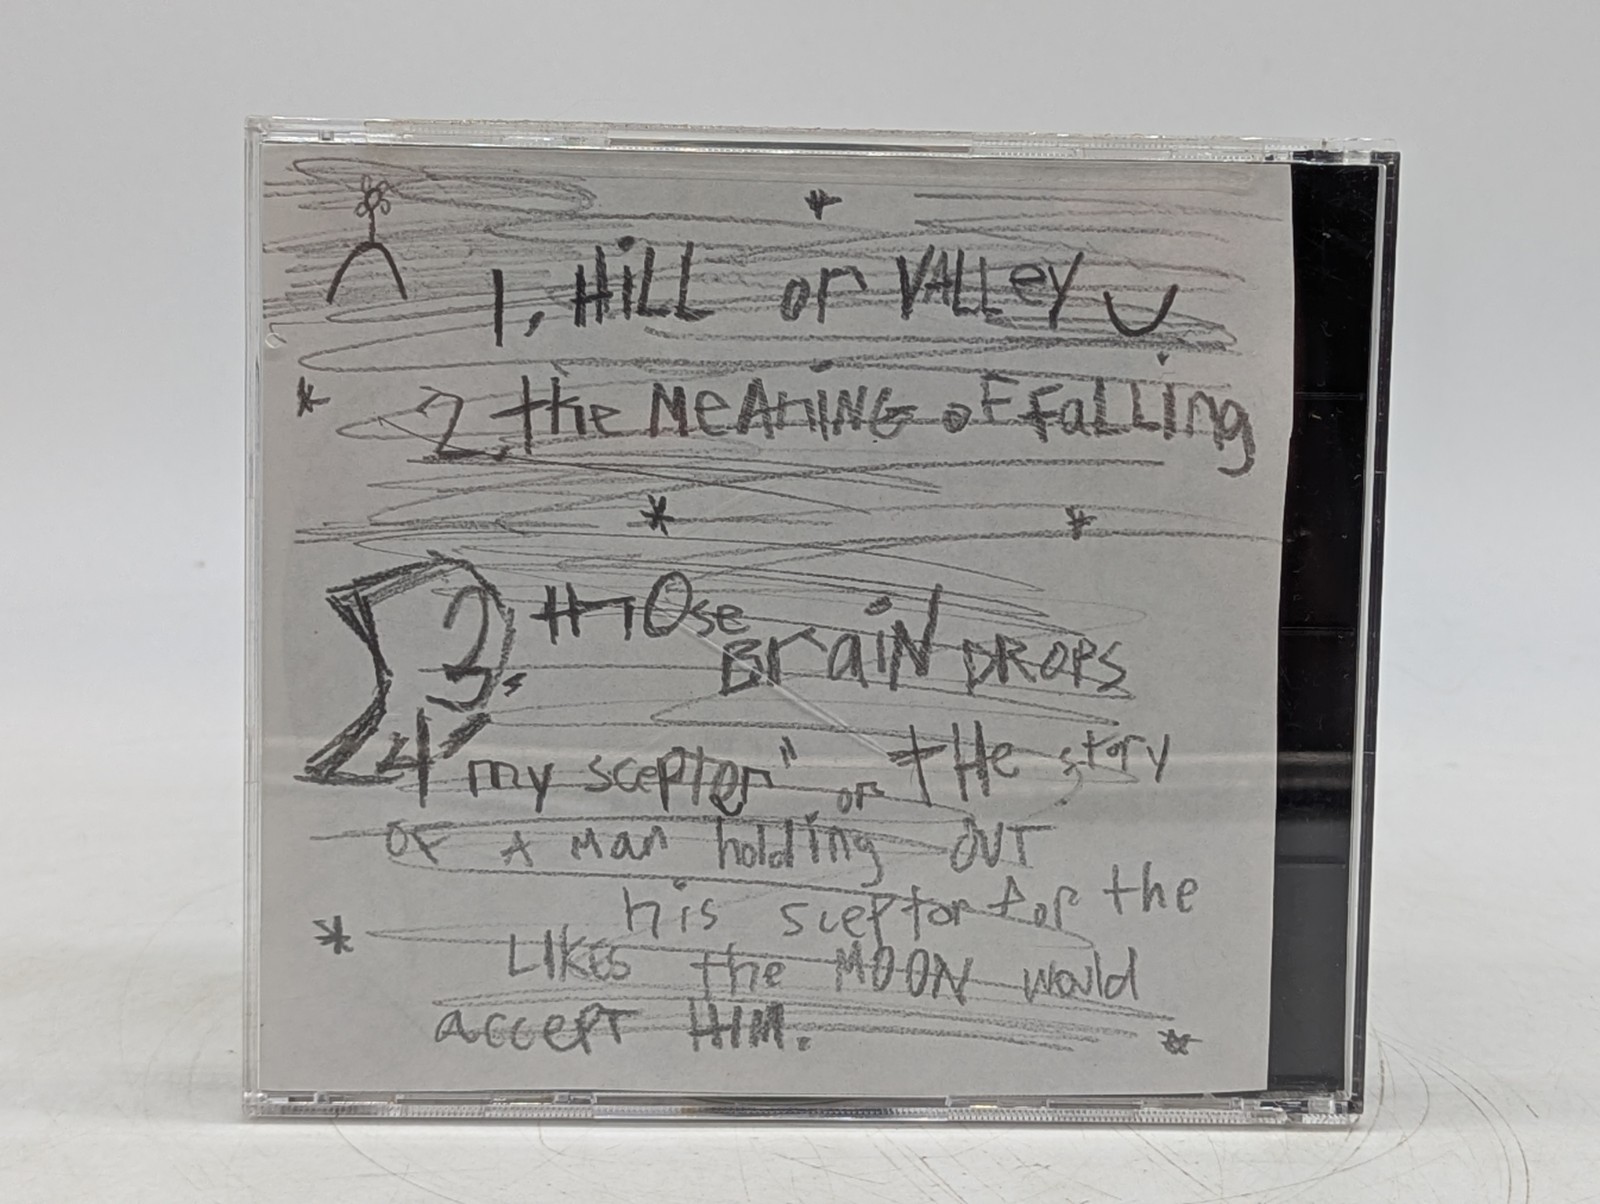 1, HiLL or VALLey
2. the MeANiNG oF FaLLing
3. thOse
BraiN DROPS
4 my scepter" or tHe story
OF A Man holding OUT
his sceptor for the
LIKES the MOON would
accept HIM.